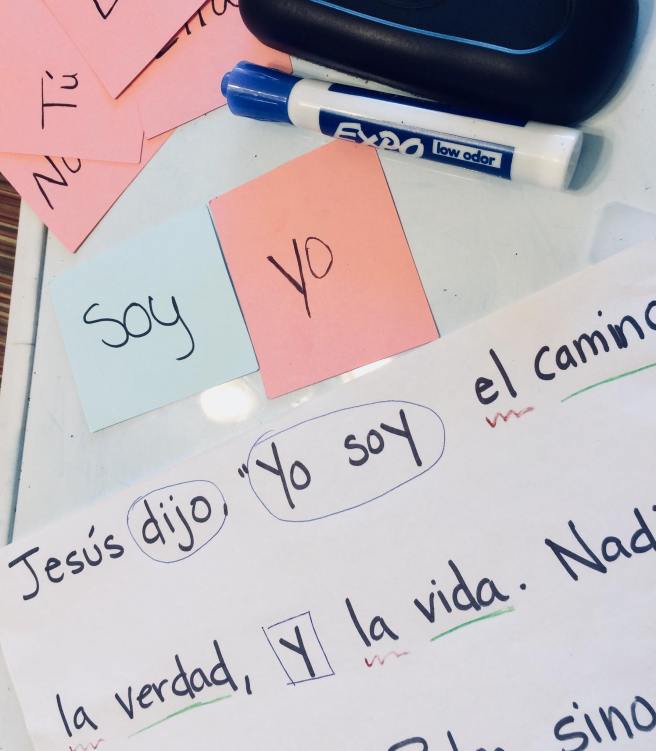 Tú
EXPO low odor
soy
yo
Jesús dijo, "Yo soy el camino
la verdad, y la vida. Nadi
sino